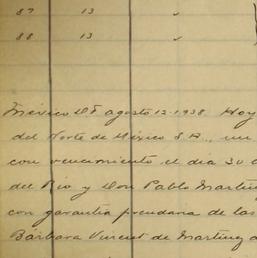 87 13 "
88 13 "
México D.F. agosto 12-1938. Hoy
del Norte de México S.A., un
con vencimiento el día 30 d
del Río y Don Pablo Martín
con garantía prendaria de las
Bárbara Vincent de Martínez a